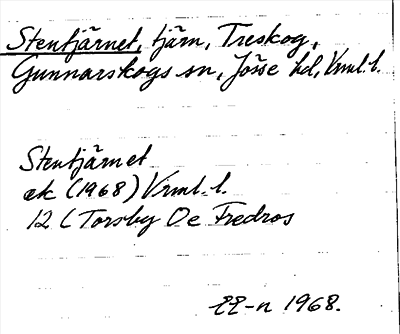 Stentjärnet, tjärn, Treskog,
Gunnarskogs sn, Jösse hd, Vrml. l.
Stentjärnet
ek (1968) Vrml. l.
12 C Torsby Oe Fredros
EE-n 1968.